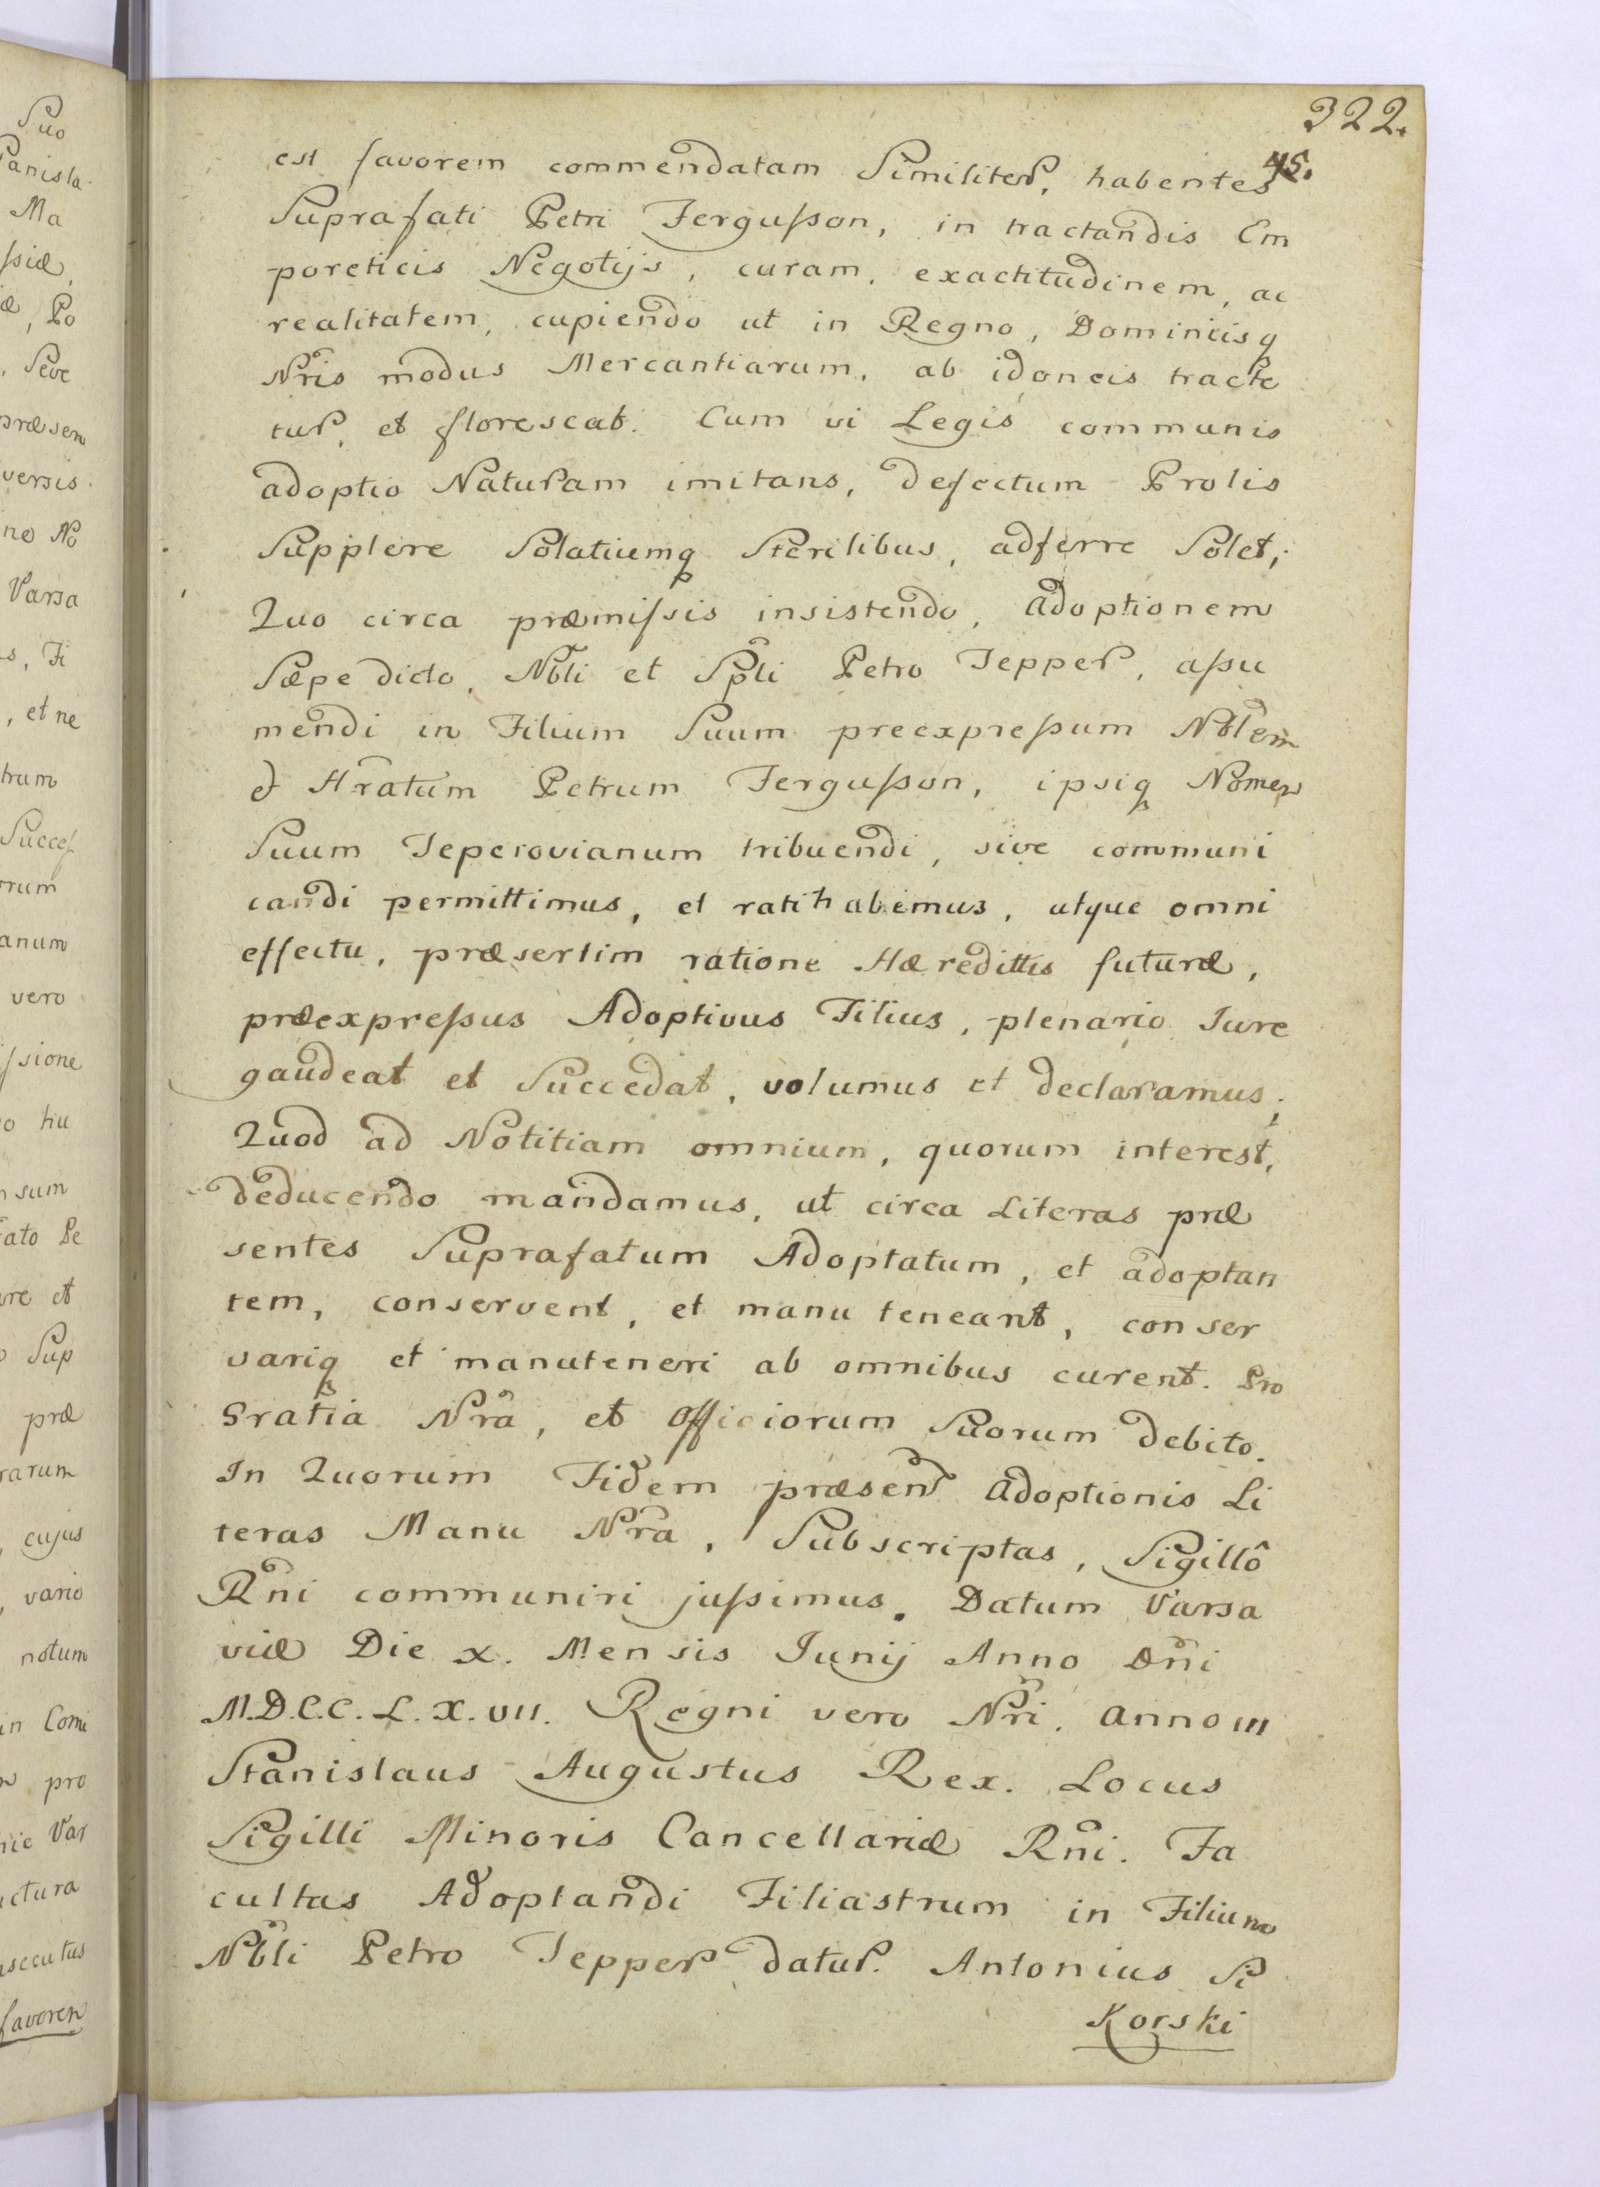 322.
45.
est favorem commendatam Similiter, habentes
Suprafati Petri Fergusson, in tractandis Em
poreticis Negotijs, curam, exactitudinem, ac
realitatem, cupiendo ut in Regno, Dominiisq
Nris modus Mercantiarum, ab idoneis tracte
tur, et florescat. Cum vi Legis communis
adoptio Naturam imitans, defectum Prolis
Supplere Solatiumq Sterilibus, adferre Solet;
Quo circa præmissis insistendo, adoptionem
Sæpe dicto, Nbli et Spli Petro Tepper, assu
mendi in Filium Suum preexpressum Noblem
et Hratum Petrum Fergusson, ipsiq Nomen
Suum Teperovianum tribuendi, sive communi
candi permittimus, et ratihabemus, utque omni
effectu, præsertim ratione Hæredittis futuræ,
præexpressus Adoptivus Filius, plenario Iure
gaudeat et Succedat, volumus et declaramus;
Quod ad Notitiam omnium, quorum interest,
deducendo mandamus, ut circa Literas præ
sentes Suprafatum Adoptatum, et adoptan
tem, conservent, et manu teneant, conser
variq et manuteneri ab omnibus curent. Pro
Gratia Nra, et Officiorum Suorum debito.
In Quorum Fidem præsen adoptionis Li
teras Manu Nra, Subscriptas, Sigillô
Rni communiri jussimus. Datum Varsa
viæ Die x. Mensis Iunij Anno Dni
M.D.C.C.L.X.VII. Regni vero Nri. anno III
Stanislaus Augustus Rex. Locus
Sigilli Minoris Cancellariæ Rni. Fa
cultas Adoptandi Filiastrum in Filium
Nbli Petro Tepper datur. Antonius Si
Korski